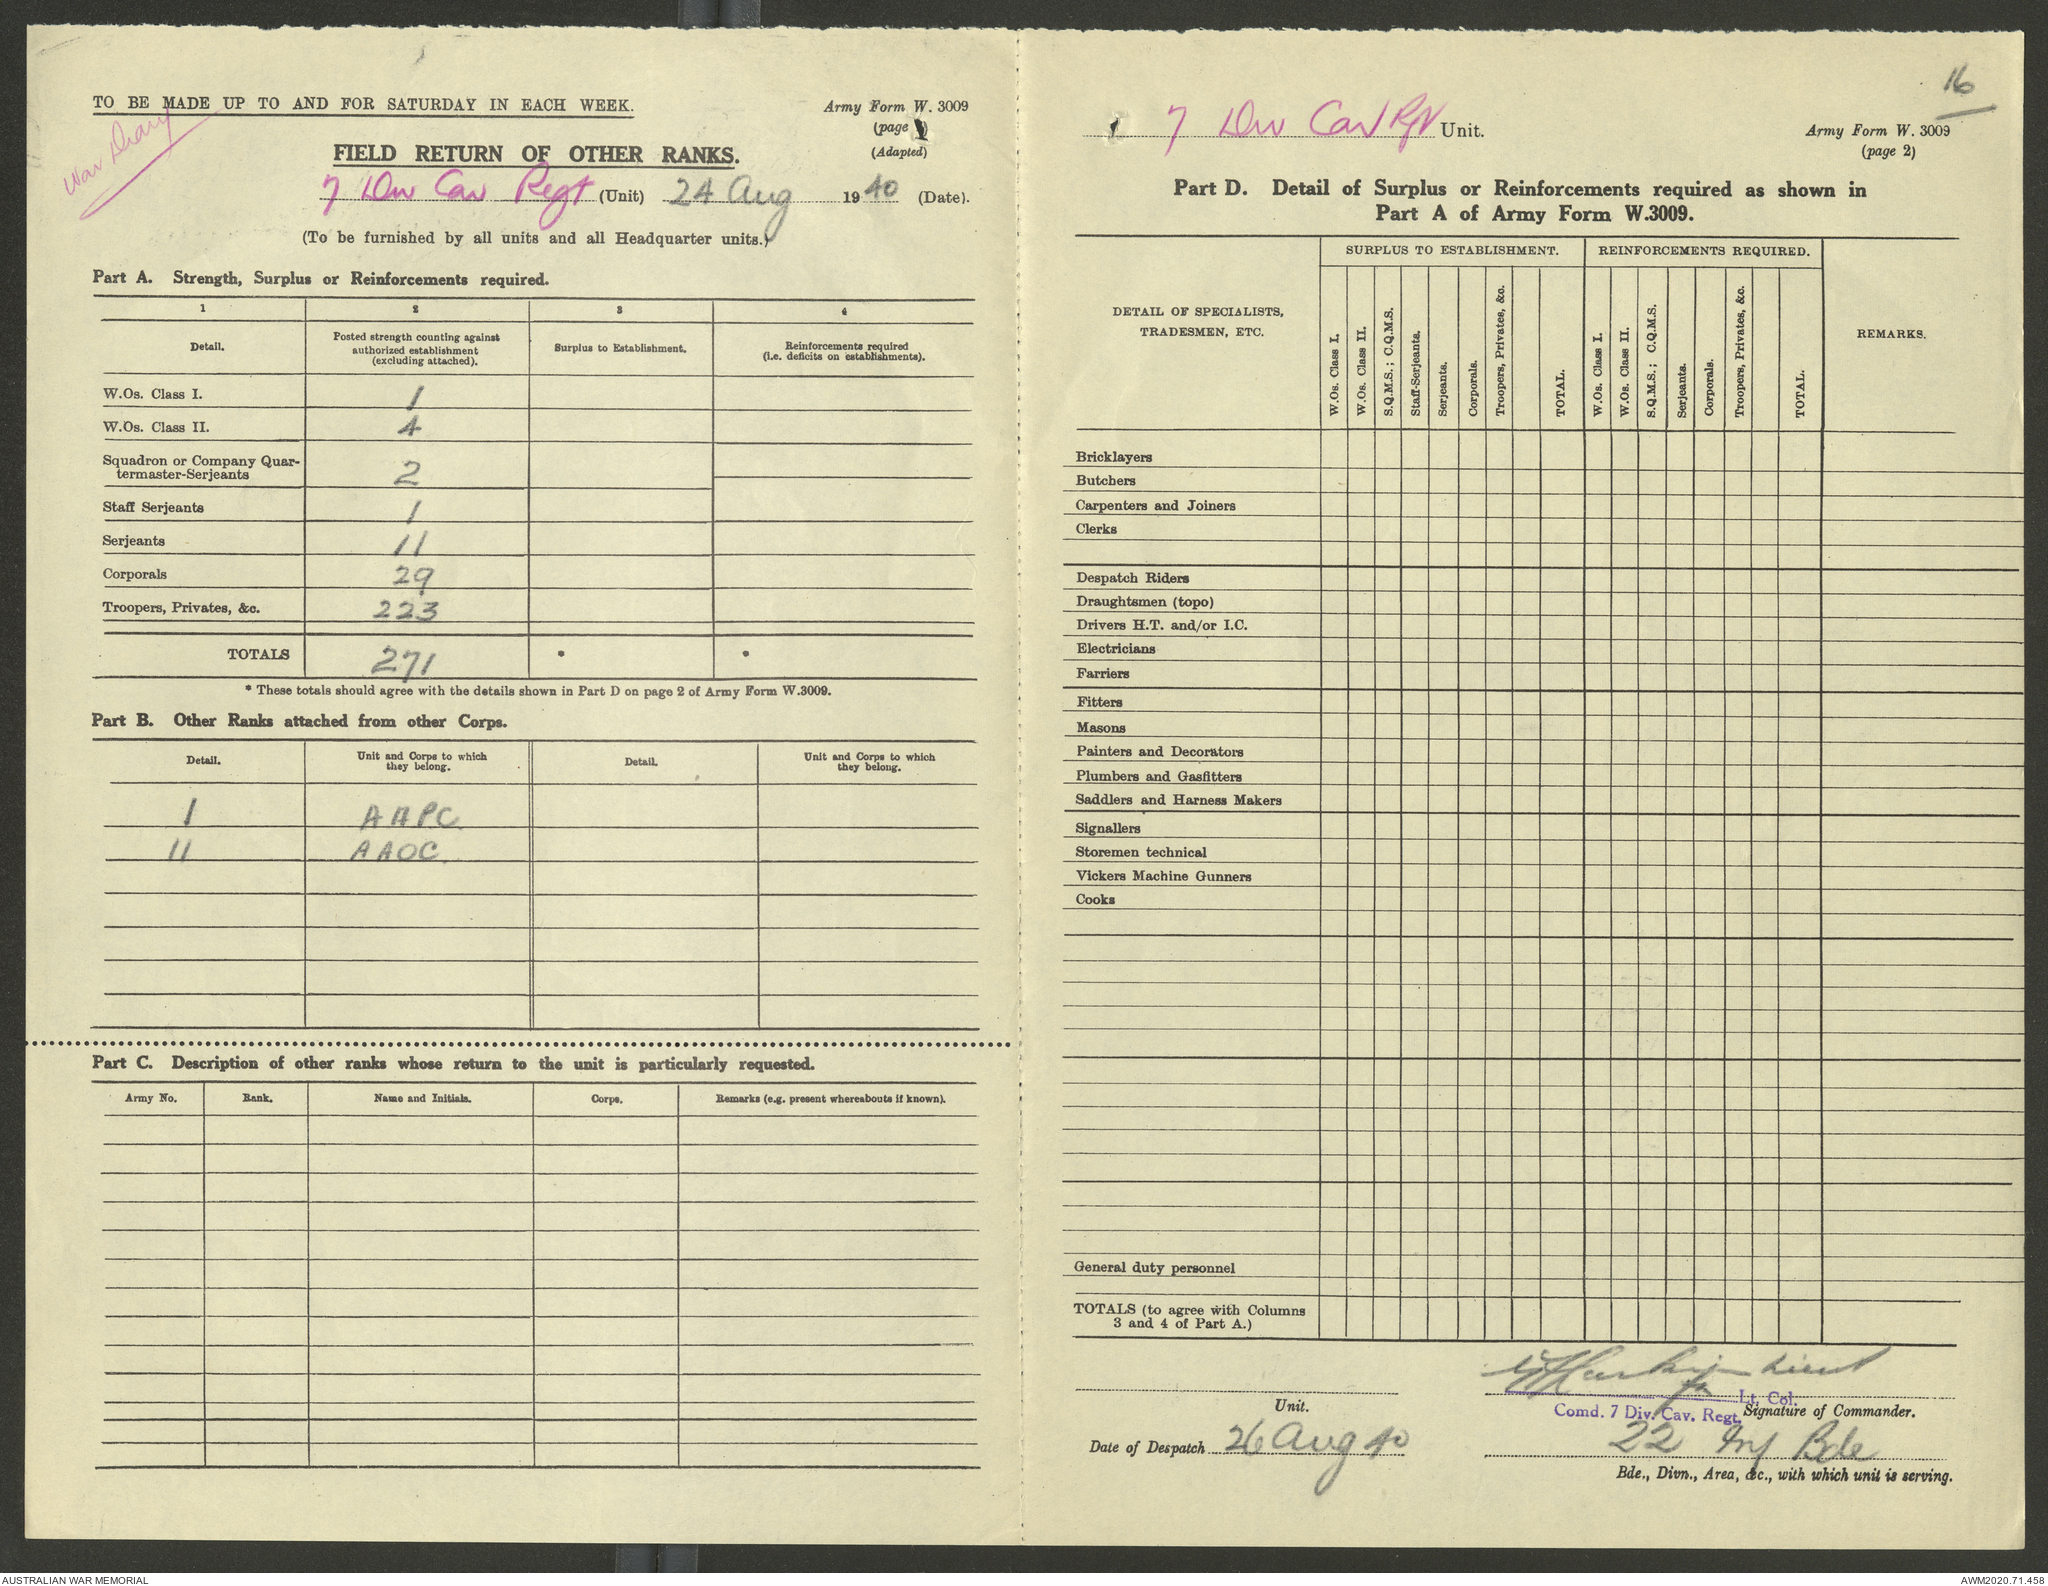 TO BE MADE UP TO AND FOR SATURDAY IN EACH WEEK.
Army Form W. 3009
(page 1)
(Adapted)
War Diary
FIELD RETURN OF OTHER RANKS.
7 Div Cav Regt (Unit) 24 Aug 1940 (Date).
(To be furnished by all units and all Headquarter units.)
Part A. Strength, Surplus or Reinforcements required.
1 2 3 4
Detail. Posted strength counting against authorized establishment (excluding attached). Surplus to Establishment. Reinforcements required (i.e. deficits on establishments).
W.Os. Class I. 1
W.Os. Class II. 4
Squadron or Company Quar-
termaster-Serjeants 2
Staff Serjeants 1
Serjeants 11
Corporals 29
Troopers, Privates, &c. 223
TOTALS 271 * *
* These totals should agree with the details shown in Part D on page 2 of Army Form W.3009.
Part B. Other Ranks attached from other Corps.
Detail. Unit and Corps to which they belong. Detail. Unit and Corps to which they belong.
1 AAPC
11 AAOC
Part C. Description of other ranks whose return to the unit is particularly requested.
Army No. Rank. Name and Initials. Corps. Remarks (e.g. present whereabouts if known).
16
7 Div Cav Rgt Unit.
Army Form W. 3009
(page 2)
Part D. Detail of Surplus or Reinforcements required as shown in
Part A of Army Form W.3009.
DETAIL OF SPECIALISTS, TRADESMEN, ETC.
SURPLUS TO ESTABLISHMENT.
REINFORCEMENTS REQUIRED.
REMARKS.
W.Os. Class I.
W.Os. Class II.
S.Q.M.S.; C.Q.M.S.
Staff-Serjeants.
Serjeants.
Corporals.
Troopers, Privates, &c.
TOTAL.
W.Os. Class I.
W.Os. Class II.
S.Q.M.S.; C.Q.M.S.
Serjeants.
Corporals.
Troopers, Privates, &c.
TOTAL.
Bricklayers
Butchers
Carpenters and Joiners
Clerks
Despatch Riders
Draughtsmen (topo)
Drivers H.T. and/or I.C.
Electricians
Farriers
Fitters
Masons
Painters and Decorators
Plumbers and Gasfitters
Saddlers and Harness Makers
Signallers
Storemen technical
Vickers Machine Gunners
Cooks
General duty personnel
TOTALS (to agree with Columns
3 and 4 of Part A.)
Lieut
for Lt. Col.
Unit.
Comd. 7 Div. Cav. Regt. Signature of Commander.
Date of Despatch 26 Aug 40
22 Inf Bde
Bde., Divn., Area, &c., with which unit is serving.
AUSTRALIAN WAR MEMORIAL
AWM2020.71.458